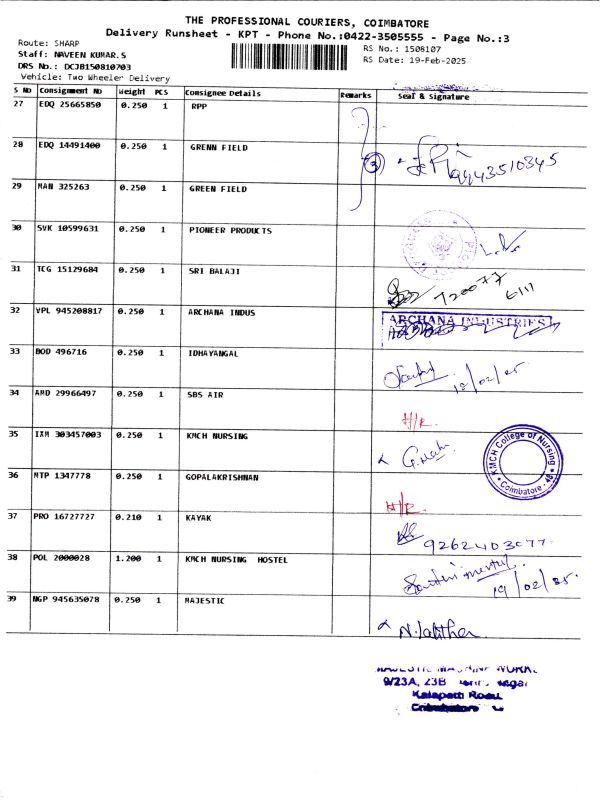 THE PROFESSIONAL COURIERS, COIMBATORE
Delivery Runsheet - KPT - Phone No.:0422-3505555 - Page No.:3
Route: SHARP
RS No.: 1508107
Staff: NAVEEN KUMAR.S
RS Date: 19-Feb-2025
DRS No.: DCJB150810703
Vehicle: Two Wheeler Delivery
S No Consignment No Weight PCS Consignee Details Remarks Seal & Signature
27 EDQ 25665850 0.250 1 RPP
28 EDQ 14491400 0.250 1 GRENN FIELD 3 9443510345
29 MAN 325263 0.250 1 GREEN FIELD
30 SVK 10599631 0.250 1 PIONEER PRODUCTS
31 TCG 15129684 0.250 1 SRI BALAJI 720077
6111
32 VPL 945208817 0.250 1 ARCHANA INDUS ARCHANA INDUSTRIES
33 BOD 496716 0.250 1 IDHAYANGAL
34 AMD 29966497 0.250 1 SBS AIR H/R
35 IXM 303457003 0.250 1 KMCH NURSING KMCH College of Nursing * Coimbatore - 48 *
36 MTP 1347778 0.250 1 GOPALAKRISHNAN H/R
37 PRO 16727727 0.210 1 KAYAK 9262403077
38 POL 2000028 1.200 1 KMCH NURSING HOSTEL 19/02/25
39 NGP 945635078 0.250 1 MAJESTIC N. Lalitha
MAJESTIC MACHINE WORK
9/23A, 23B Nagar
Kalapatti Road
Coimbatore